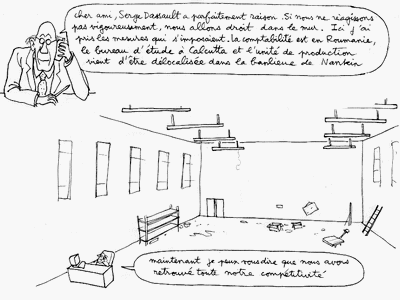 cher ami, Serge Dassault a parfaitement raison. Si nous ne réagissons
pas vigoureusement, nous allons droit dans le mur. Ici j'ai
pris les mesures qui s'imposaient. La comptabilité est en Roumanie,
le bureau d'étude à Calcutta et l'unité de production
vient d'être délocalisée dans la banlieue de Nankin
maintenant je peux vous dire que nous avons
retrouvé toute notre compétitivité